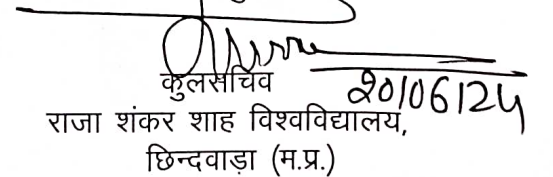 कुलसचिव
20/06/24
राजा शंकर शाह विश्वविद्यालय,
छिन्दवाड़ा (म.प्र.)